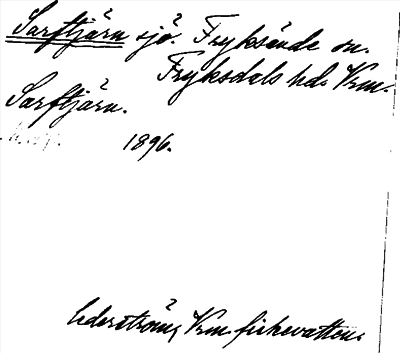 Sarftjärn sjö. Fryksände sn.
Fryksdals hd. Vrm.
Sarftjärn.
1896.
Cederström, Vrm fiskevatten.